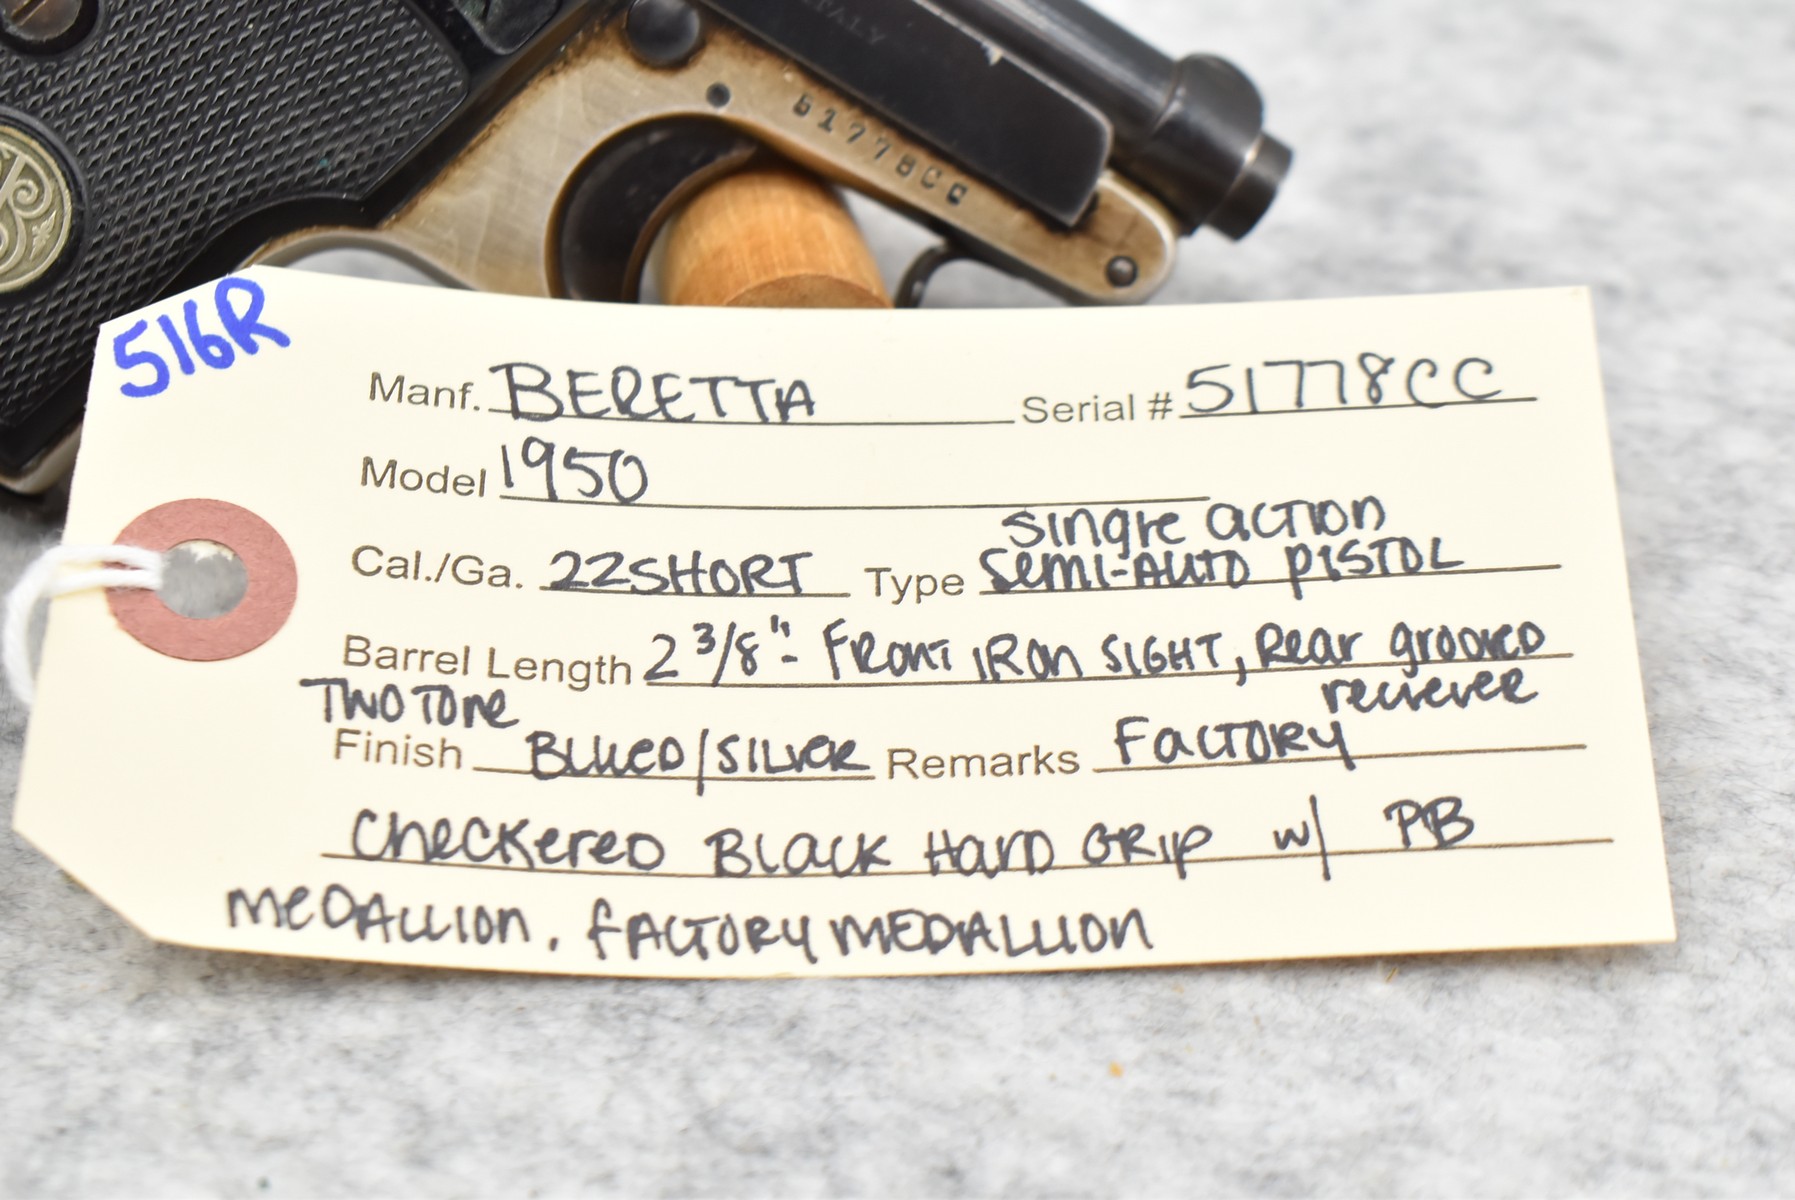 ITALY
51778CC
PB
516R
Manf. BERETTA Serial # 51778CC
Model 1950
Cal./Ga. 22SHORT Type Single action Semi-Auto PISTOL
Barrel Length 2 3/8"- Front iron sight, Rear grooved reciever
Finish Two Tone Blued/Silver Remarks Factory
Checkered Black Hard Grip w/ PB
Medallion. Factory Medallion